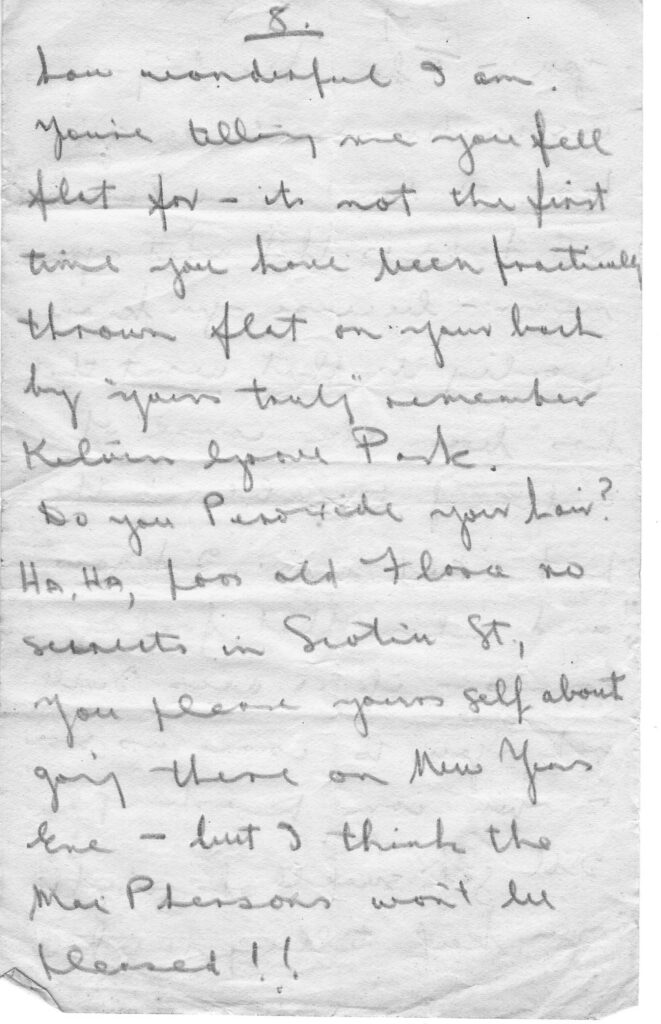 8.
how wonderful I am.
You're telling me you fell
flat for - its not the first
time you have been practically
thrown flat on your back
by "yours truly" remember
Kelvin Grove Park.
Do you Peroxide your hair?
Ha, Ha, poor old Flora no
secrets in Scotia St,
You please yours self about
going there on New Years
Eve - but I think the
MacPhersons won't be
pleased!!